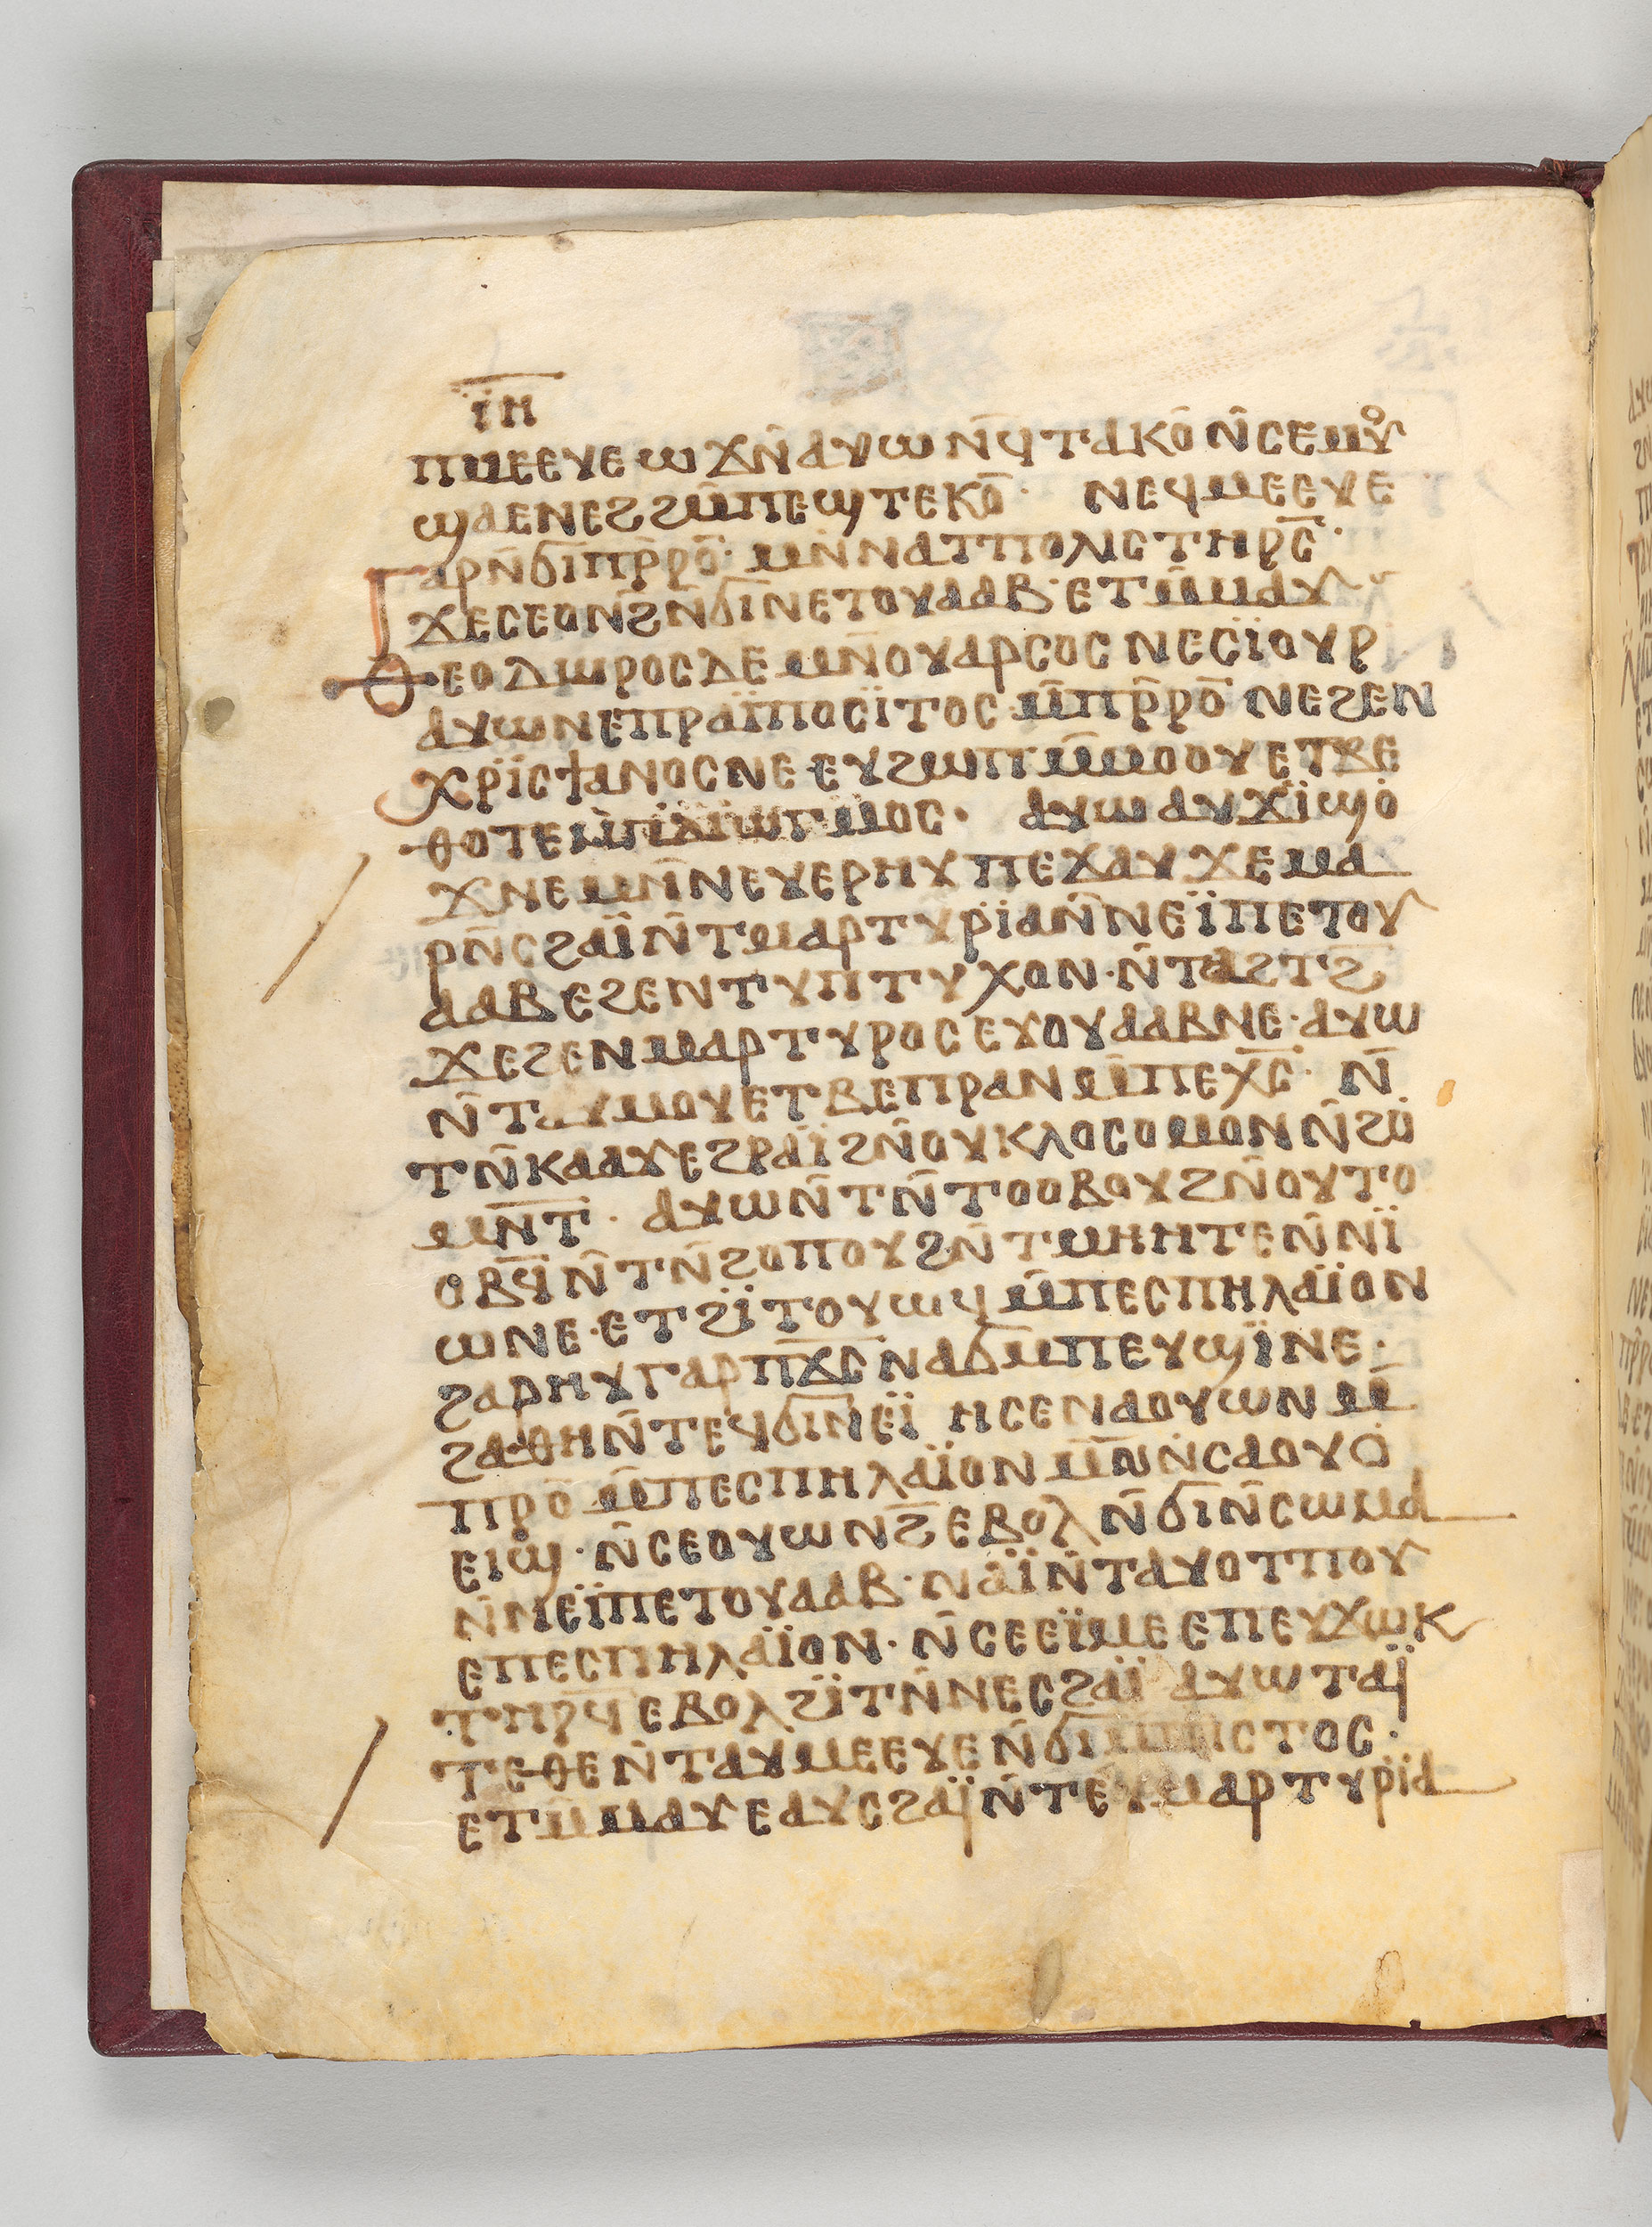 ⲓ̈ⲏ
ⲡⲙⲉⲉⲩⲉ ⲱϫⲛ̄ ⲁⲩⲱ ⲛϥ̄ⲧⲁⲕⲟ̄ ⲛ̄ⲥⲉⲙⲟⲩ
ϣⲁⲉⲛⲉϩ ϩⲙ̄ⲡⲉϣⲧⲉⲕⲟ̄· ⲛⲉϥⲙⲉⲉⲩⲉ
ⲅⲁⲣ ⲛ̄ϭⲓⲡⲣ̄ⲣⲟ̄· ⲙⲛ̄ⲛⲁⲧⲡⲟⲗⲓⲥ ⲧⲏⲣⲥ̄·
ϫⲉⲥⲉⲟⲛϩ̄ ⲛ̄ϭⲓⲛⲉⲧⲟⲩⲁⲁⲃ· ⲉⲧⲙ̄ⲙⲁⲩ
ⲑⲉⲟⲇⲱⲣⲟⲥ ⲇⲉ ⲙⲛ̄ⲟⲩⲁⲣⲥⲟⲥ ⲛⲉⲥⲓ̈ⲟⲩⲣ
ⲁⲩⲱ ⲛⲉⲡⲣⲁⲓ̈ⲡⲟⲥⲓ̈ⲧⲟⲥ ⲙ̄ⲡⲣ̄ⲣⲟ̄ ⲛⲉϩⲉⲛ
ⲭⲣⲓ̈ⲥϯⲁⲛⲟⲥ ⲛⲉ ⲉⲩϩⲱⲡ ⲙ̄ⲙⲟⲟⲩ ⲉⲧⲃⲉ
ⲑⲟⲧⲉ ⲙ̄ⲡⲇⲓ̈ⲱⲅⲙⲟⲥ· ⲁⲩⲱ ⲁⲩϫⲓ̈ϣⲟ
ϫⲛⲉ ⲙⲛ̄ⲛⲉⲩⲉⲣⲏⲩ ⲡⲉϫⲁⲩ ϫⲉⲙⲁ
ⲣⲛ̄ⲥϩⲁⲓ̈ ⲛ̄ⲧⲙⲁⲣⲧⲩⲣⲓ̈ⲁ ⲛ̄ⲛⲉⲓ̈ⲡⲉⲧⲟⲩ
ⲁⲁⲃ ⲉϩⲉⲛⲧⲩⲡⲧⲩⲭⲟⲛ· ⲛ̄ⲧⲁϩⲧϩ̄
ϫⲉϩⲉⲛⲙⲁⲣⲧⲩⲣⲟⲥ ⲉⲩⲟⲩⲁⲁⲃ ⲛⲉ· ⲁⲩⲱ
ⲛ̄ⲧⲁⲩⲙⲟⲩ ⲉⲧⲃⲉⲡⲣⲁⲛ ⲙ̄ⲡⲉⲭ̄ⲥ̄· ⲛ̄
ⲧⲛ̄ⲕⲁⲁⲩ ⲉϩⲣⲁⲓ̈ ϩⲛ̄ⲟⲩⲕⲗⲟⲥⲟⲙⲟⲛ ⲛ̄ϩⲟ
ⲙⲛ̄ⲧ̄· ⲁⲩⲱ ⲛ̄ⲧⲛ̄ⲧⲟⲟⲃⲟⲩ ϩⲛ̄ⲟⲩⲧⲟ
ⲟⲃϥ̄ ⲛ̄ⲧⲛ̄ϩⲟⲡⲟⲩ ϩⲛ̄ⲧⲙⲏⲏⲧⲉ ⲛ̄ⲛⲓ̈
ⲱⲛⲉ· ⲉⲧϩⲓ̈ⲧⲟⲩⲱϥ ⲙ̄ⲡⲉⲥⲡⲏⲗⲁⲓ̈ⲟⲛ
ϩⲁⲣⲏⲩ ⲅⲁⲣ ⲡⲭ̄ⲥ̄ ⲛⲁϭⲙ̄ⲡⲉⲩϣⲓ̈ⲛⲉ·
ϩⲁⲑⲏ ⲛ̄ⲧⲉϥϭⲓⲛⲉⲓ̈ ⲏⲥⲉⲛⲁⲟⲩⲱⲛ ⲙ̄
ⲡⲣⲟ ⲙ̄ⲡⲉⲥⲡⲏⲗⲁⲓ̈ⲟⲛ ⲙⲛ̄ⲛ̄ⲥⲁⲟⲩⲟ
ⲉⲓϣ· ⲛ̄ⲥⲉⲟⲩⲱⲛϩ̄ ⲉⲃⲟⲗ ⲛ̄ϭⲓⲛ̄ⲥⲱⲙⲁ
ⲛ̄ⲛⲉⲓ̈ⲡⲉⲧⲟⲩⲁⲁⲃ· ⲛⲁⲓ̈ ⲛ̄ⲧⲁⲩⲟⲧⲡⲟⲩ
ⲉⲡⲉⲥⲡⲏⲗⲁⲓ̈ⲟⲛ· ⲛ̄ⲥⲉⲉⲓ̈ⲙⲉ ⲉⲡⲉⲩϫⲱⲕ
ⲧⲏⲣϥ̄ ⲉⲃⲟⲗ ϩⲓ̈ⲧⲛ̄ⲛⲉⲥϩⲁⲓ̈ ⲁⲩⲱ ⲧⲁⲓ̈
ⲧⲉ ⲑⲉ ⲛ̄ⲧⲁⲩⲙⲉⲉⲩⲉ ⲛ̄ϭⲓⲙ̄ⲡⲓⲥⲧⲟⲥ·
ⲉⲧⲙ̄ⲙⲁⲩ ⲉⲁⲩⲥϩⲁⲓ̈ ⲛ̄ⲧⲉⲩⲙⲁⲣⲧⲩⲣⲓ̈ⲁ